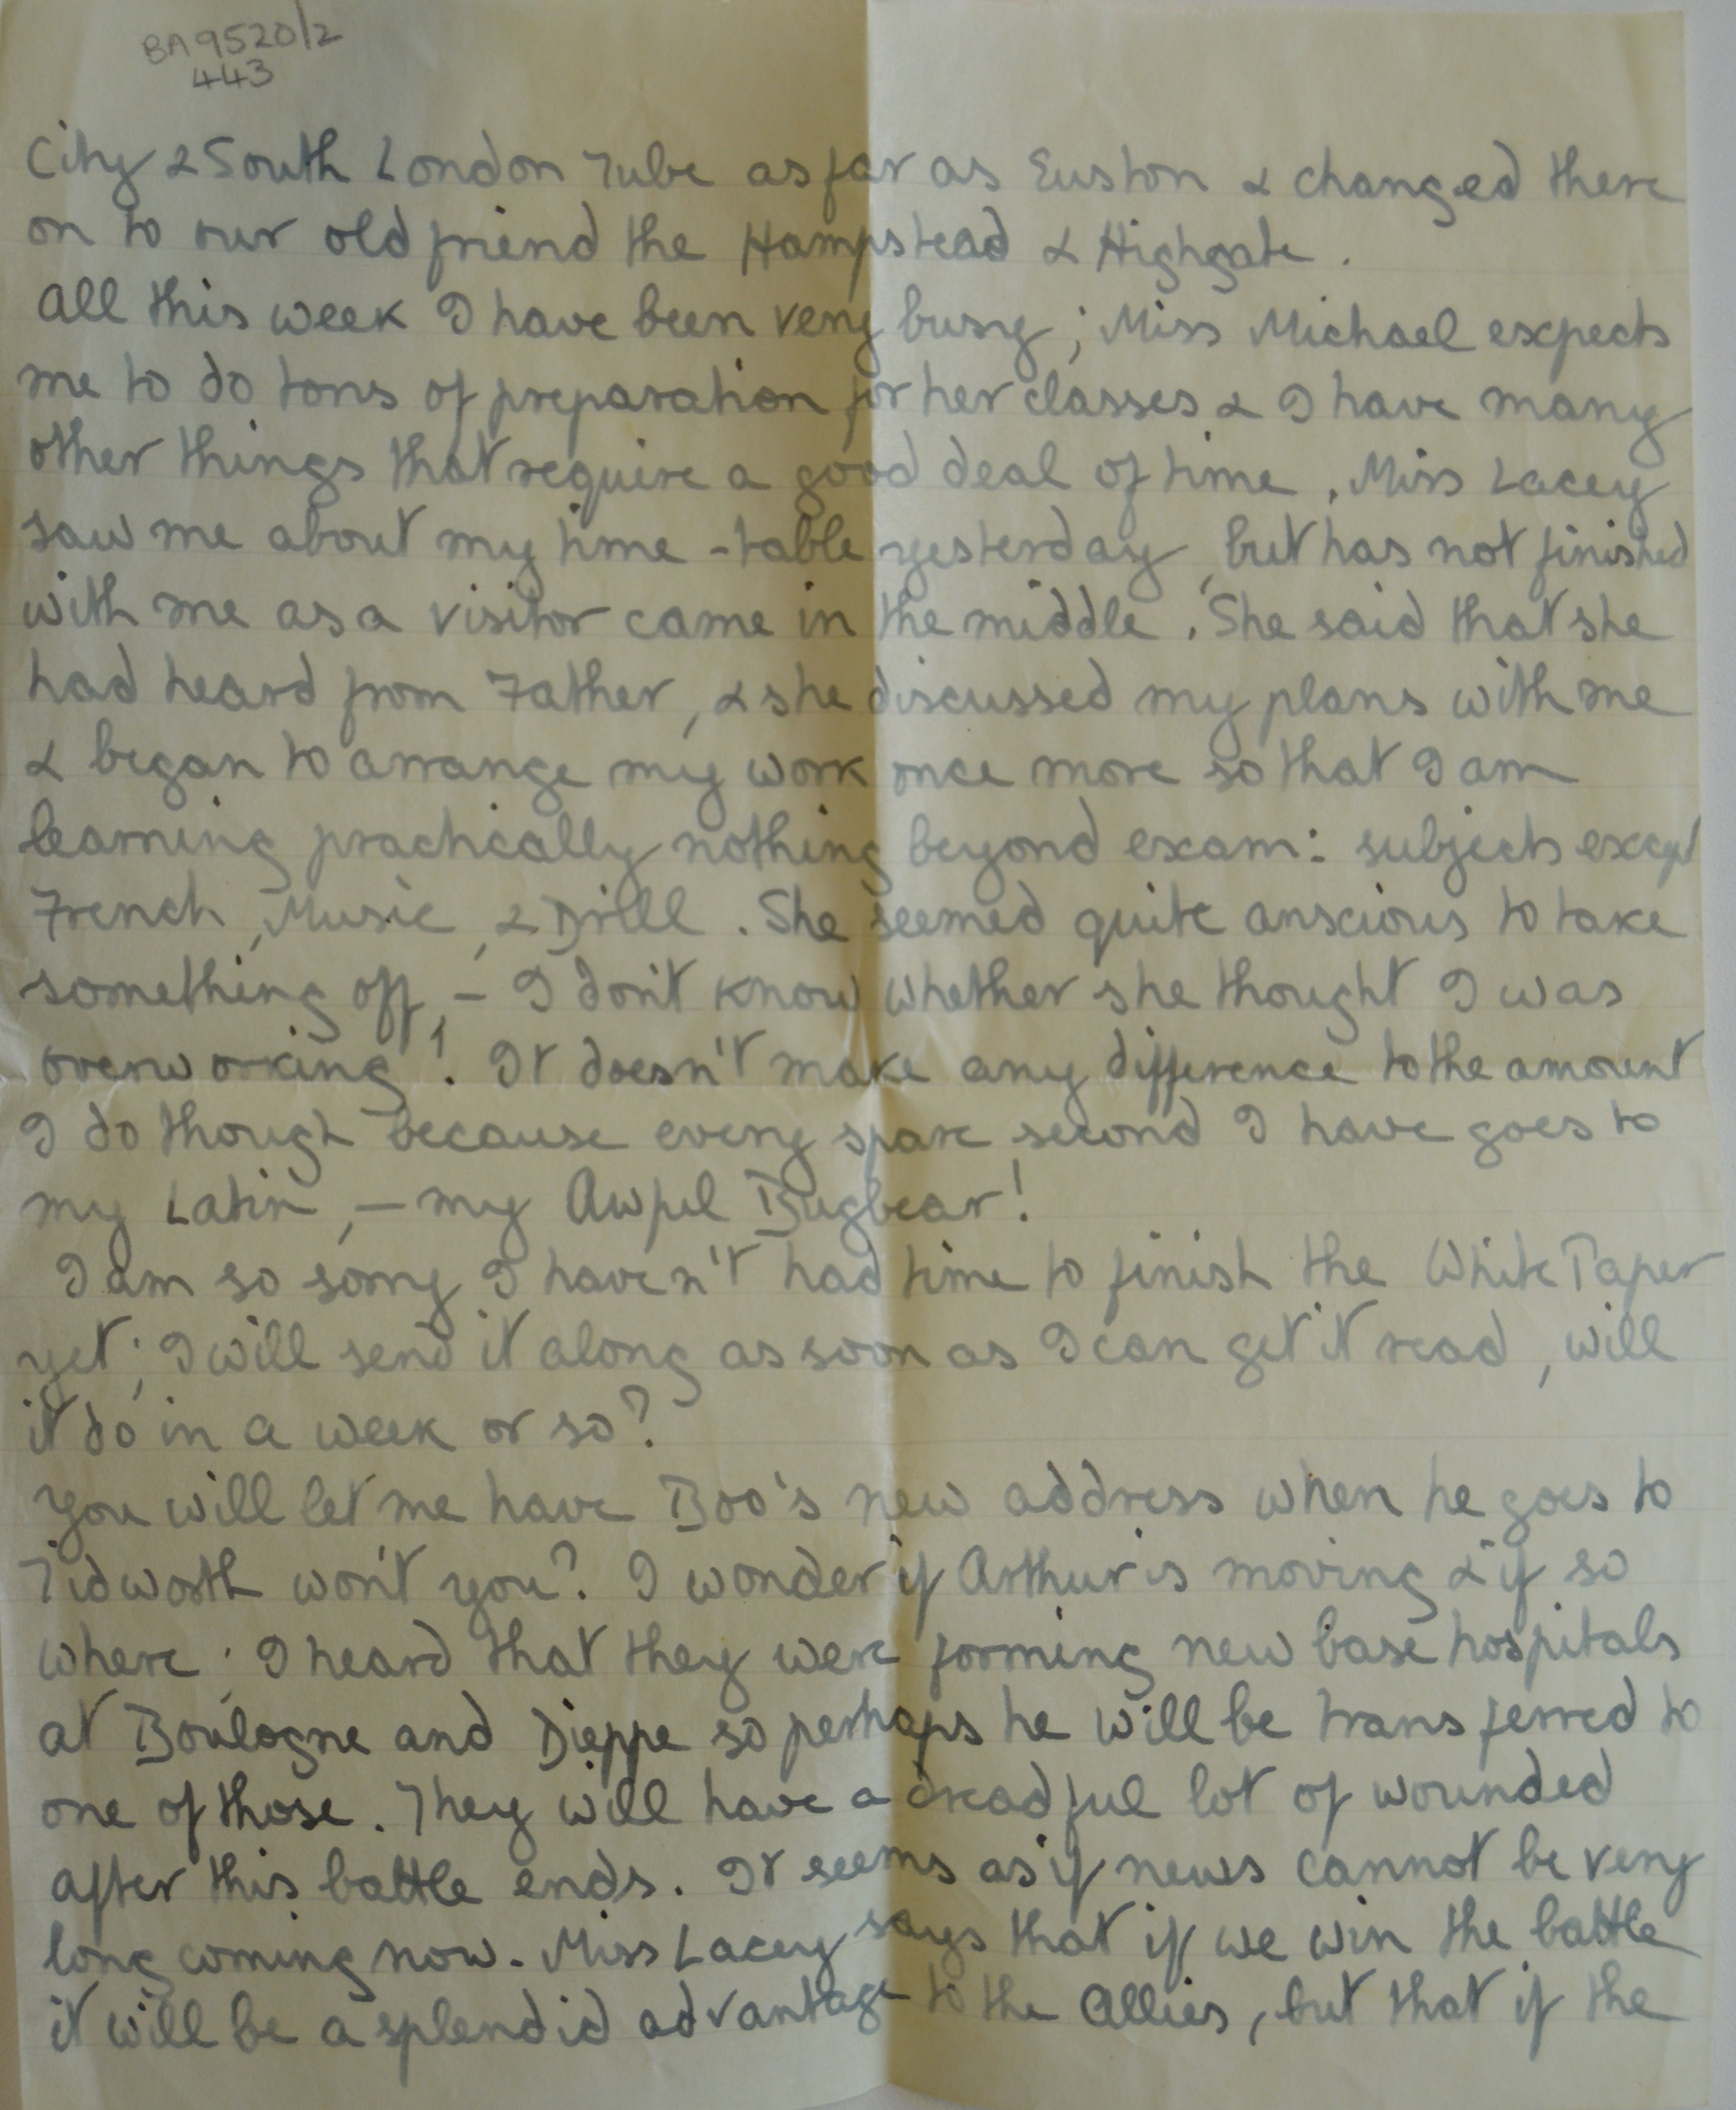 BA9520/2
443
City & South London Tube as far as Euston & changed there
on to our old friend the Hampstead & Highgate.
All this week I have been very busy; Miss Michael expects
me to do tons of preparation for her classes & I have many
other things that require a good deal of time. Miss Lacey
saw me about my time-table yesterday, but has not finished
with me as a visitor came in the middle. She said that she
had heard from Father, & she discussed my plans with me
& began to arrange my work once more so that I am
learning practically nothing beyond exam: subjects except
French, Music, & Drill. She seemed quite anxious to take
something off, – I don't know whether she thought I was
overworking! It doesn't make any difference to the amount
I do though because every spare second I have goes to
my Latin, – my Awful Bugbear!
I am so sorry I haven't had time to finish the White Paper
yet; I will send it along as soon as I can get it read, will
it do in a week or so?
You will let me have Boo's new address when he goes to
Tidworth won't you? I wonder if Arthur is moving & if so
where; I heard that they were forming new base hospitals
at Boulogne and Dieppe so perhaps he will be transferred to
one of those. They will have a dreadful lot of wounded
after this battle ends. It seems as if news cannot be very
long coming now. Miss Lacey says that if we win the battle
it will be a splendid advantage to the Allies, but that if the